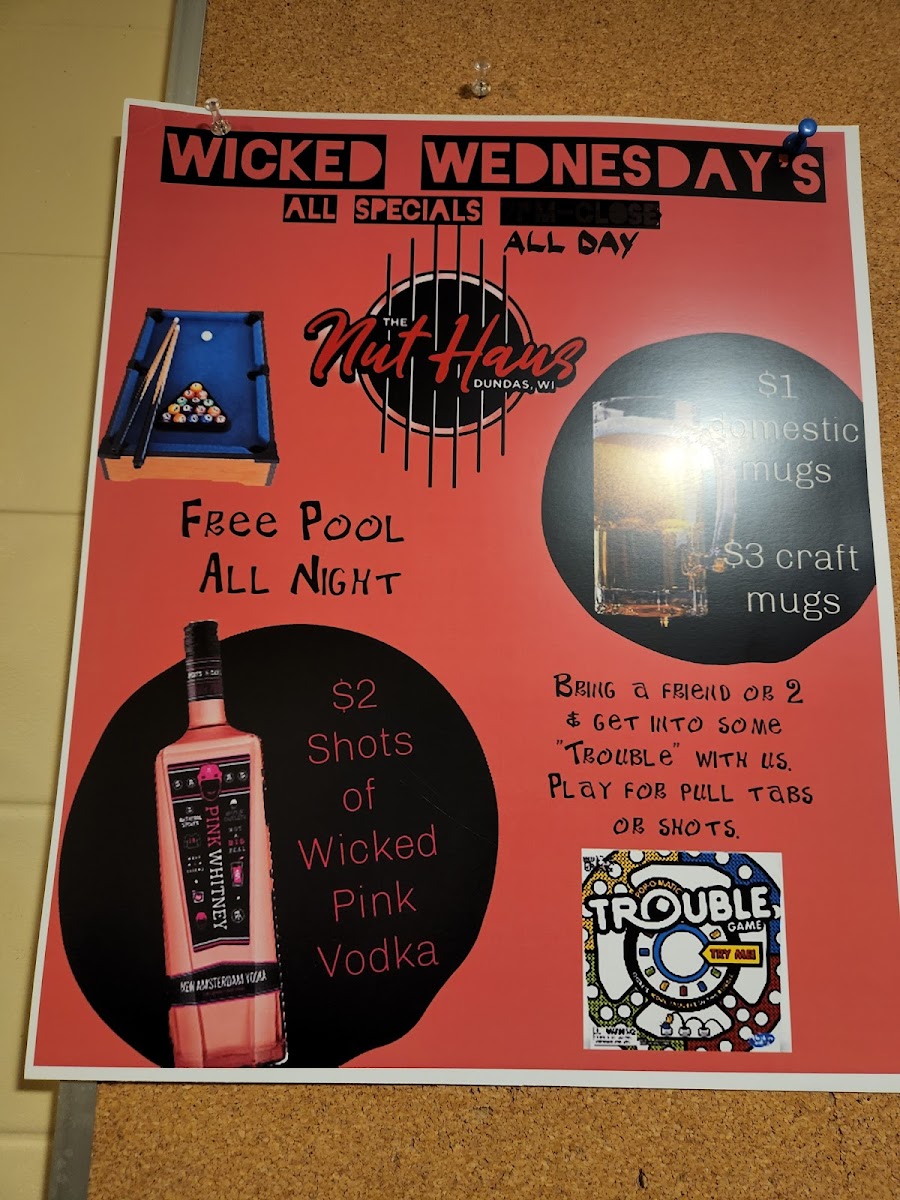 WICKED WEDNESDAY'S
ALL SPECIALS PM-CLOSE
ALL DAY
THE
Nut Haus
DUNDAS, WI
$1
domestic
mugs
$3 craft
mugs
FREE POOL
ALL NIGHT
$2
Shots
of
Wicked
Pink
Vodka
PINK WHITNEY
NEW AMSTERDAM VODKA
BRING A FRIEND OR 2
& GET INTO SOME
"TROUBLE" WITH US.
PLAY FOR PULL TABS
OR SHOTS.
POP-O-MATIC
TROUBLE
GAME
TRY ME!